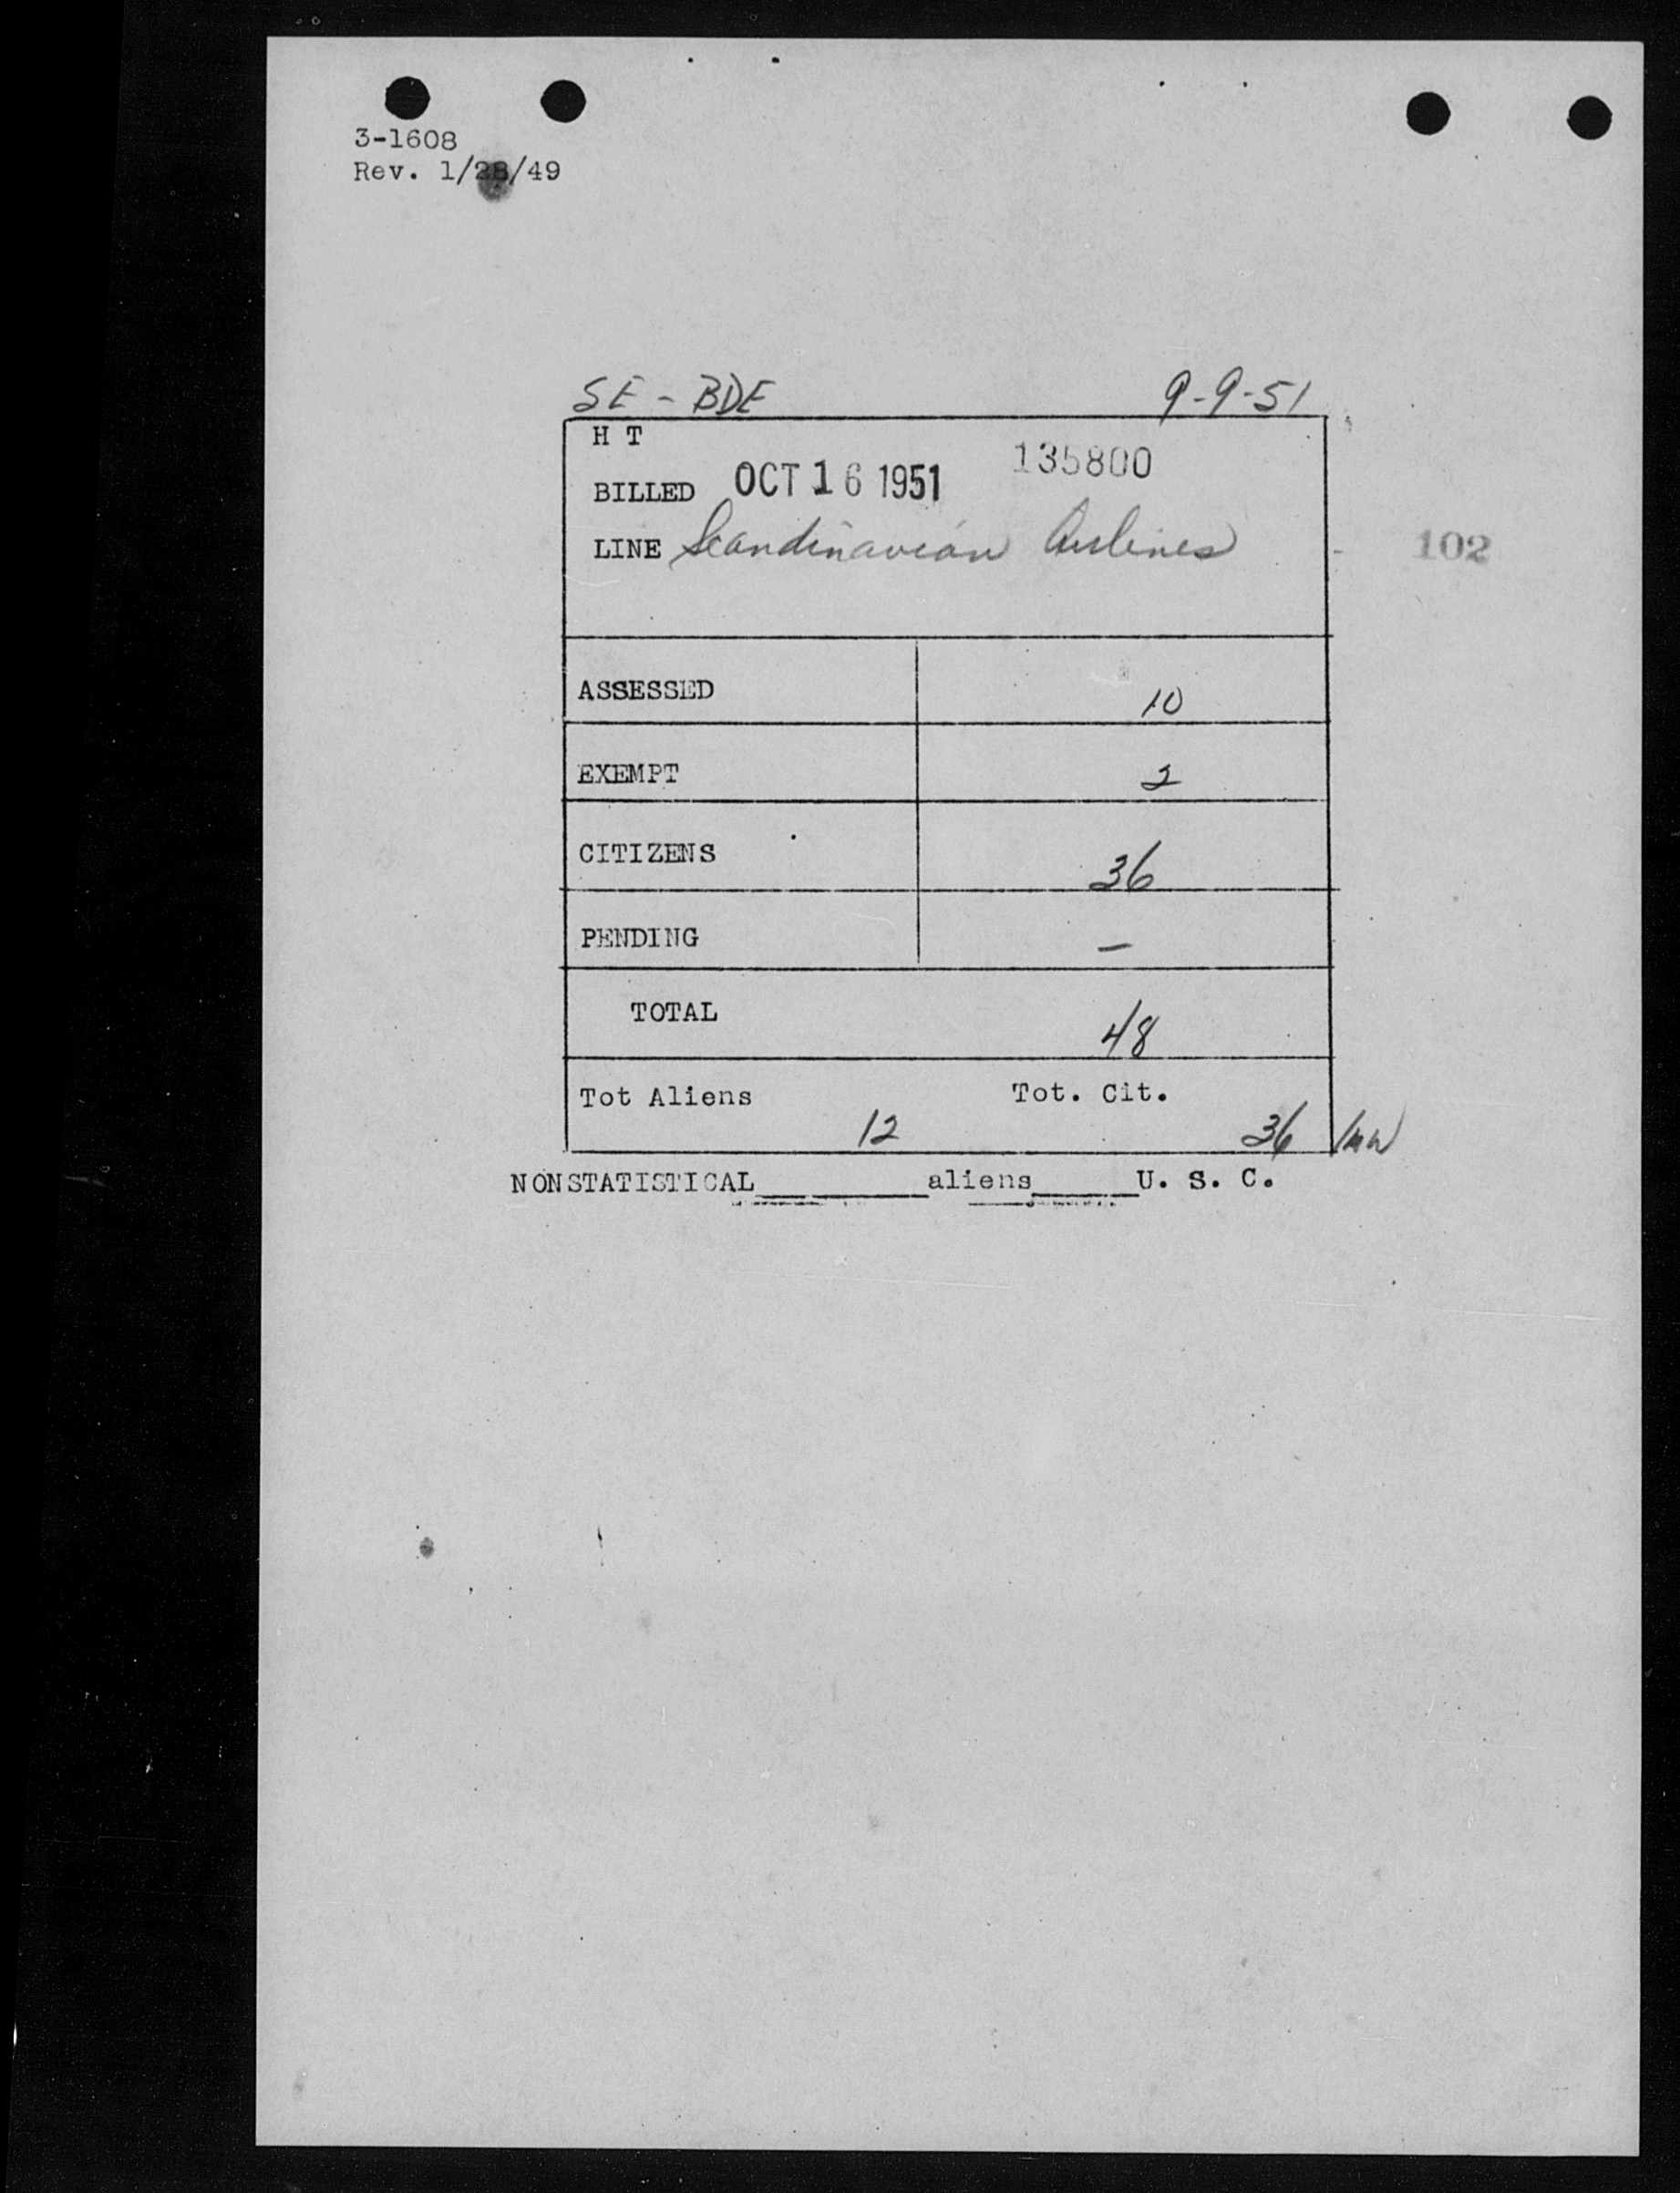 3-1608
Rev. 1/28/49
SE - BDE 9-9-51
H T
135800
BILLED OCT 16 1951
LINE Scandinavian Airlines
102
ASSESSED 10
EXEMPT 2
CITIZENS 36
PENDING —
TOTAL 48
Tot Aliens Tot. Cit.
12 36
NONSTATISTICAL__________aliens______U. S. C.